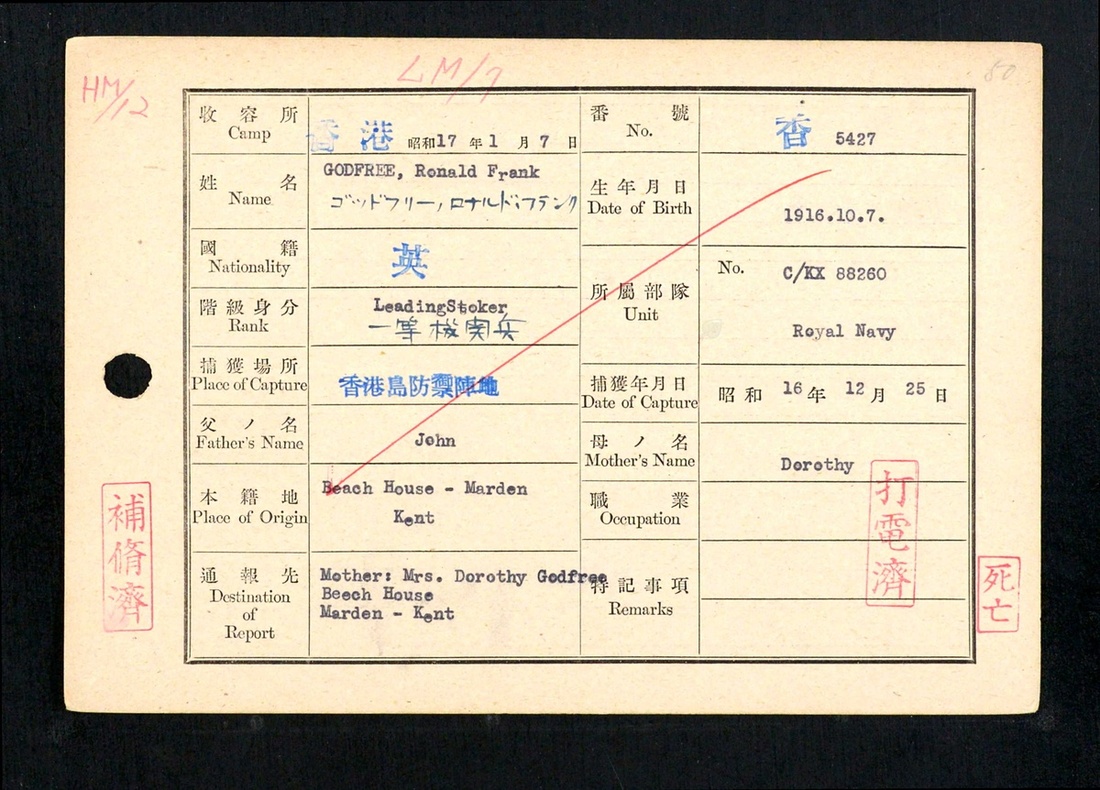 HM/12
LM/7
80
收容所
Camp
香港 昭和17年1月7日
番號
No.
香 5427
姓名
Name
GODFREE, Ronald Frank
ゴッドフリー,ロナルド・フランク
生年月日
Date of Birth
1916.10.7.
國籍
Nationality
英
階級身分
Rank
LeadingStoker
一等機関兵
所屬部隊
Unit
No. C/KX 88260
Royal Navy
捕獲場所
Place of Capture
香港島防禦陣地
捕獲年月日
Date of Capture
昭和16年12月25日
父ノ名
Father's Name
John
母ノ名
Mother's Name
Dorothy
本籍地
Place of Origin
Beach House - Marden
Kent
職業
Occupation
通報先
Destination
of
Report
Mother: Mrs. Dorothy Godfree
Beech House
Marden - Kent
特記事項
Remarks
補脩濟
打電濟
死亡